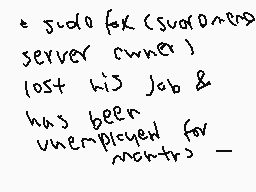 • sudofox (sudomemo
server owner)
lost his job &
has been
unemployed for
months _